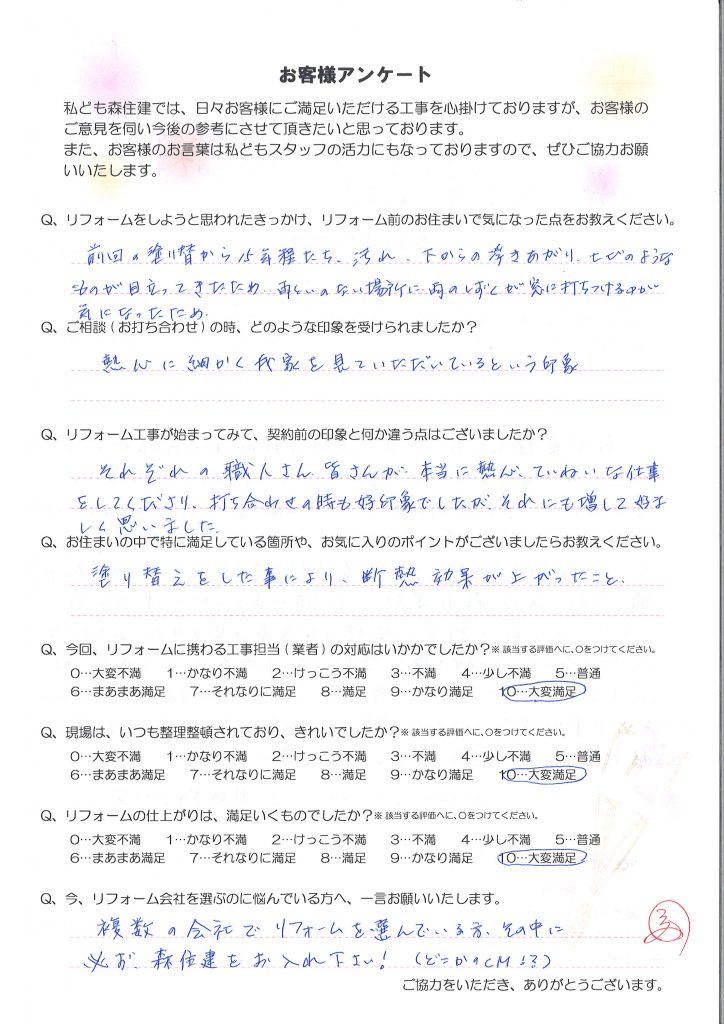 お客様アンケート
私ども森住建では、日々お客様にご満足いただける工事を心掛けておりますが、お客様の
ご意見を伺い今後の参考にさせて頂きたいと思っております。
また、お客様のお言葉は私どもスタッフの活力にもなっておりますので、ぜひご協力お願
いいたします。
Q、リフォームをしようと思われたきっかけ、リフォーム前のお住まいで気になった点をお教えください。
前回の塗り替から15年程たち、汚れ、下からの浮きあがり、とびのような
ものが目立ってきたため。雨といのない場所に雨のしずくが窓に打ちつけるのが
気になったため。
Q、ご相談(お打ち合わせ)の時、どのような印象を受けられましたか?
熱心に細かく我家を見ていただいているという印象
Q、リフォーム工事が始まってみて、契約前の印象と何か違う点はございましたか?
それぞれの職人さん皆さんが本当に熱心、ていねいな仕事
をしてくださり、打ち合わせの時も好印象でしたが、それにも増して好ま
しく思いました。
Q、お住まいの中で特に満足している箇所や、お気に入りのポイントがございましたらお教えください。
塗り替えをした事により、断熱効果が上がったこと。
Q、今回、リフォームに携わる工事担当(業者)の対応はいかかでしたか?※該当する評価へに、〇をつけてください。
0…大変不満 1…かなり不満 2…けっこう不満 3…不満 4…少し不満 5…普通
6…まあまあ満足 7…それなりに満足 8…満足 9…かなり満足 10…大変満足
Q、現場は、いつも整理整頓されており、きれいでしたか?※該当する評価へに、〇をつけてください。
0…大変不満 1…かなり不満 2…けっこう不満 3…不満 4…少し不満 5…普通
6…まあまあ満足 7…それなりに満足 8…満足 9…かなり満足 10…大変満足
Q、リフォームの仕上がりは、満足いくものでしたか?※該当する評価へに、〇をつけてください。
0…大変不満 1…かなり不満 2…けっこう不満 3…不満 4…少し不満 5…普通
6…まあまあ満足 7…それなりに満足 8…満足 9…かなり満足 10…大変満足
Q、今、リフォーム会社を選ぶのに悩んでいる方へ、一言お願いいたします。
複数の会社でリフォームを選んでいる方、その中に
必ず、森住建をお入れ下さい!(どこかのCMよろ)
ご協力をいただき、ありがとうございます。